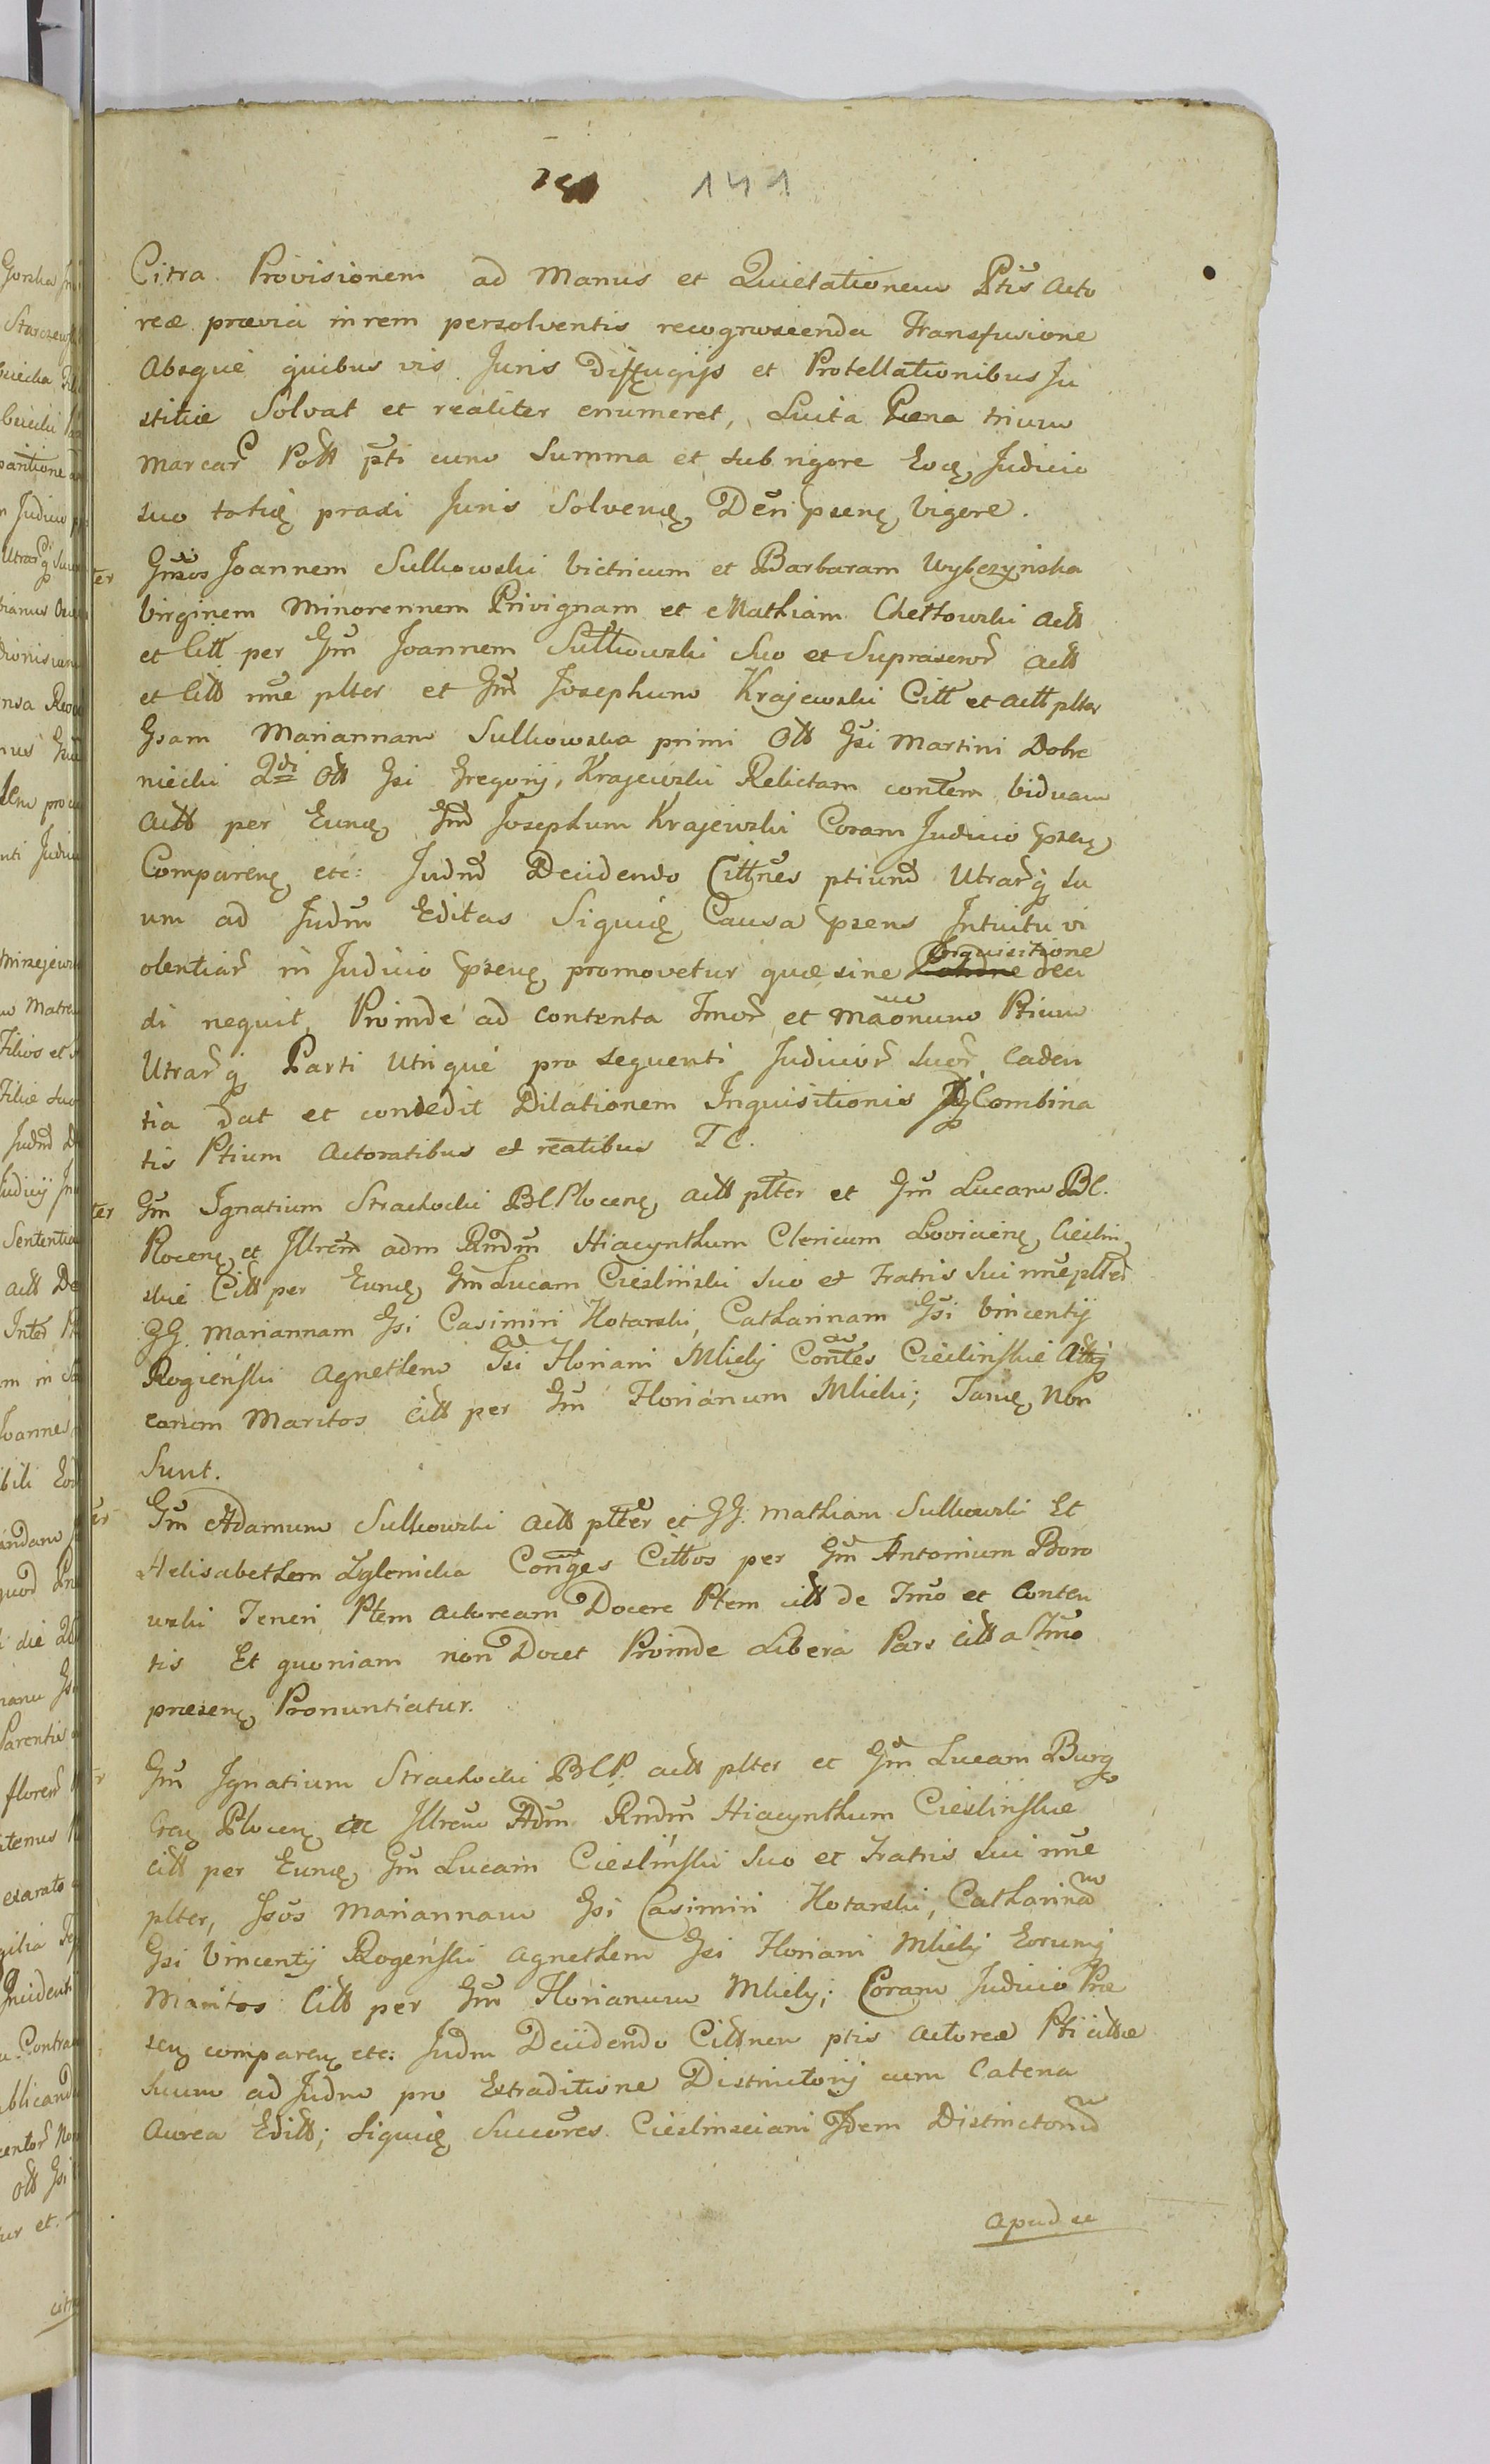 141
Citra Provisionem ad Manus et Quietationem Ptis Acto
reæ prævia in rem persolventis recognoscenda Transfusione
Absque quibus vis Juris Diffugijs et Protellationibus Ju
stitiæ Solvat et realiter enumeret, Luita Pæna trium
Marcar Pott pti cum Summa et sub rigore Judicio
suo totię Juris Solvenę, Dĕri pzenę, Vigore.
ter Gnsos Joannem Sulkowski Victricum et Barbaram Wybczyńska
Virginem Minorennem Privignam et Mathiam Chettowski Actt
et Citt per Gm Joannem Sulkowski Suo et Suprascror actt
et Citt nne plter et Gm Josephum Krajewski Citt et actt plter
Gsam Mariannam Sulkowska primi Ott Gsi Martini Dobr
niecki 2di Ott Gsi Gregorij, Krajewski Relictam contem viduam
Actt per Eunę, Gm Josephum Krajewski Coram Judicio pzenę,
Comparenę, etc: Judm Decidendo Cittnes ptium Utrarq su
um ad Judm Editas Siquię, Causa pzens Intuitu vi
olentiar in Judicio pzenę, promovetur quæ sine Inquisitione deci
di nequit, Proinde ad contenta Tmor et maonum Ptium
Utrarq Parti Utrique pro sequenti Judicior suor Caden
tia dat et concedit Dilationem Inquisitionis Combina
tis Ptium Actoratibus et reatibus T C.
ter Gm Ignatium Strachocki B C Plocenę, actt plter et Gm Lucam B C.
Plocenę et Illrem adm Rndm Hiacynthum Clericum Lovicienę, Cieślin,
skie Citt per Eunę, Gm Lucam Cieślinski Suo et Fratris sui nne plter
GG. Mariannam Gsi Casimiri Kotarski, Catharinam Gsi Vincentij
Rogieński Agnethem Gsi Floriani Mlicky Contes Cieślinskie Attq
earum Maritos Citt per Gm Florianum Mlicki; Tanę, Non
Sunt.
Gm Adamum Sulkowski actt plter et GG. Mathiam Sulkowski Et
Helisabethem Zglenicka Conges Cittos per Gm Antonium Boro
wski Teneri Ptem actoream Docere Ptem citt de Tmo et Conten
tis Et quoniam non Docet Proinde Libera Pars Citt a Tmo
præsenę, Pronuntiatur.
Gm Ignatium Strachocki B C P. actt plter et Gm Lucam Burg
Crenę Plocenę et Illrem Adm Rndm Hiacynthum Cieślinskie
citt per Eunę, Gm Lucam Cieslinski Suo et Fratris sui nne
plter, Gsos Mariannam Gsi Casimiri Kotarski, Catharinam
Gsi Vincentij Rogeński Agnethem Gsi Floriani Mlicky Eorumq
Maritos Citt per Gm Florianum Mlicky; Coram Judicio Præ
senę comparenę etc: Judm Decidendo Cittnem ptis actoreæ Pti cittæ
Suum ad Judm pro Extraditione Distinctorij cum Catena
Aurea Editt; Siquię, Succores Cieslinsciani Idem Distinctorm
apud se